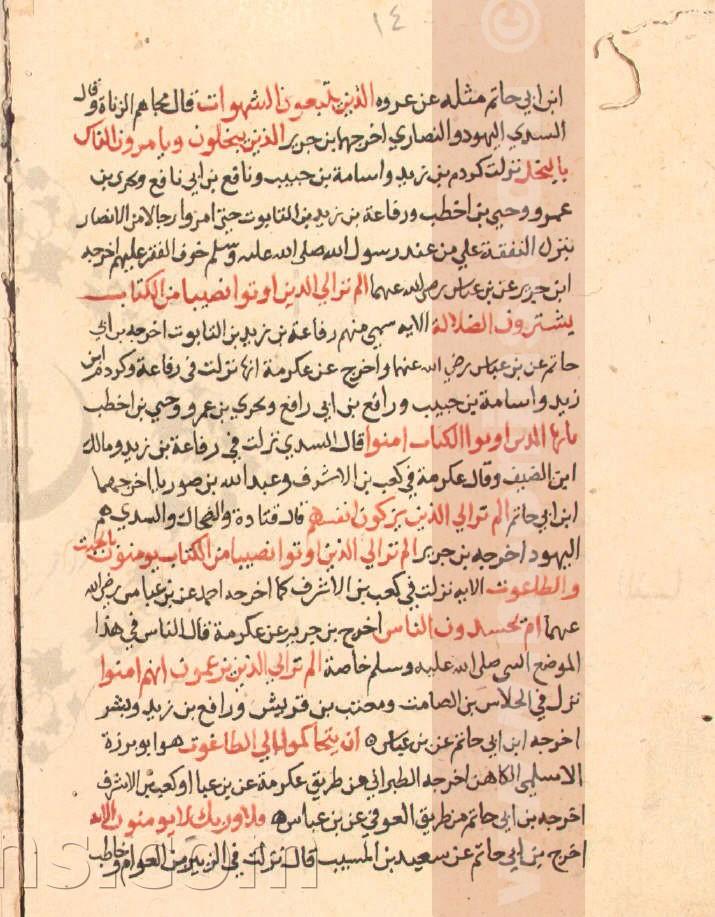 ١٤
ابن ابي حاتم مثله عن عروه الذين يتبعون الشهوات قال مجاهم الزناة وقال
السدي اليهود والنصاري اخرجهما بن جرير الذين يبخلون ويامرون الناس
بالبخل نزلت كردم بن زيد واسامة بن حبيب ونافع بن ابي نافع وبحري بن
عمرو وحيي بن اخطب ورفاعة بن زيد بن التابوت حتي امروا رجالا من الانصار
بترك النفقة علي من عند رسول الله صلى الله عليه وسلم خوف الفقر عليهم اخرجه
ابن جرير عن بن عباس رضي الله عنهما الم تر الي الذين اوتوا نصيبا من الكتاب
يشترون الضلالة الايه سمي منهم رفاعة بن زيد بن التابوت اخرجه بن ابي
حاتم عن بن عباس رضي الله عنهما واخرج عن عكرمة انها نزلت في رفاعة وكردم ابن
زيد واسامة بن حبيب ورافع بن ابي رافع وبحري بن عمرو وحيي بن اخطب
يا ايها الذين اوتوا الكتاب امنوا قال السدي نزلت في رفاعة بن زيد ومالك
ابن الضيف وقال عكرمة في كعب بن الاشرف وعبد الله بن صوريا اخرجهما
ابن ابي حاتم الم تر الي الذين يزكون انفسهم قال قتادة والضحاك والسدي هم
اليهود اخرجه بن جرير الم تر الي الذين اوتوا نصيبا من الكتاب يومنون بالجبت
والطاعوت الايه نزلت في كعب بن الاشرف كما اخرجه احمد عن بن عباس رضي الله
عنهما ام يحسدون الناس اخرج بن جرير عن عكرمة قال الناس في هذا
الموضع النبي صلى الله عليه وسلم خاصة الم تر الي الذين يزعمون انهم امنوا
نزل في الجلاس بن الصامت ومعتب بن قريش ورافع بن زيد وبشر
اخرجه ابن ابي حاتم عن بن عباس ان يتحاكموا الي الطاغوت هو ابو برزة
الاسلمي الكاهن اخرجه الطبراني من طريق عكرمة عن بن عبا او كعب بن الاشرف
اخرجه بن ابي حاتم من طريق العوفي عن بن عباس فلا وربك لا يومنون الايه
اخرج بن ابي حاتم عن سعيد بن المسيب قال نزلت في الزبير بن العوام وحاطب
ns.com